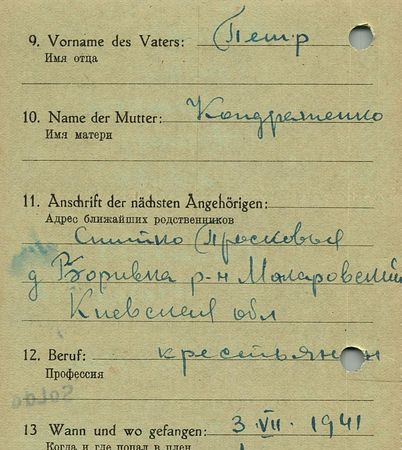 9. Vorname des Vaters: Петр
Имя отца
10. Name der Mutter: Кондратенко
Имя матери
11. Anschrift der nächsten Angehörigen:
Адрес ближайших родственников
Просковья
д р-н Макаровский
Киевская обл
12. Beruf: крестьянин
Профессия
13 Wann und wo gefangen: 3. VII. 1941
Когда и где попал в плен